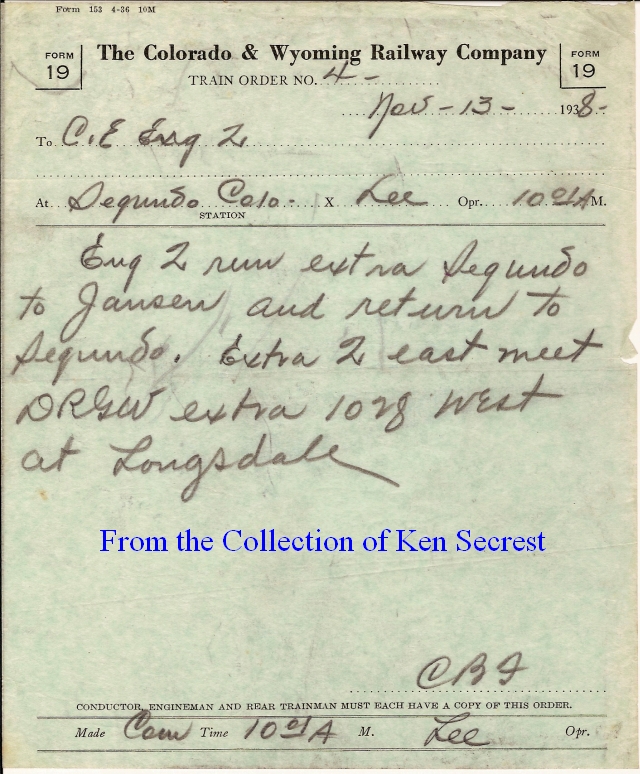 Form 153 4-36 10M
FORM 19
The Colorado & Wyoming Railway Company
FORM 19
TRAIN ORDER NO. 4 -
Nov - 13 - 1938 -
To C. & E Eng 2
At Segundo Colo. X Lee Opr. 1001 A M.
STATION
Eng 2 run extra Segundo
to Jansen and return to
Segundo. Extra 2 east meet
DRGW extra 1028 West
at Longsdale
From the Collection of Ken Secrest
CBF
CONDUCTOR, ENGINEMAN AND REAR TRAINMAN MUST EACH HAVE A COPY OF THIS ORDER.
Made Com Time 1001 A M. Lee Opr.